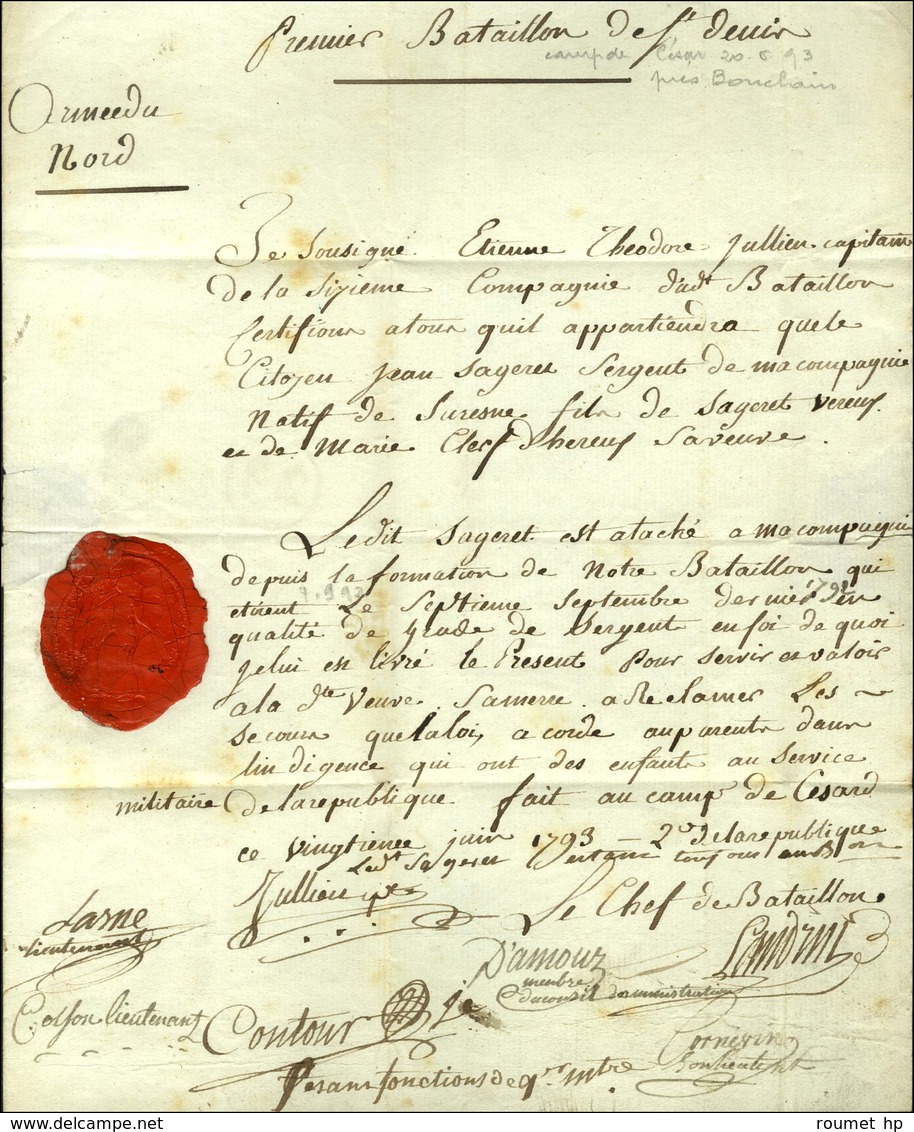 Premier Bataillon de St denis
camp de César 20.6.93
près Bouchain
Armee du
Nord
Je Sousigné Etienne Theodore Jullien capitain
de la Sizieme Compagnie dudt Bataillon
Certifions atous quil appartiendra quele
Citoyen Jean Sageret Sergent de macompagnie
Natif de Suresne fils de Sageret
et de Marie Saveuve.
Ledit Sageret est ataché a macompagnie
depuis la formation de Notre Bataillon qui
7.9.92
etoient Le Septieme Septembre dernier en
qualité de grade de Sergent enfoi de quoi
Jelui est livré le Present pour servir et valoir
ala dte Veuve Samerre a Reclamer Les
secours quelaloi, acorde auparents dans
lindigence qui ont des enfants au Service
militaire Delarepublique fait au camp de Césard
ce vingtieme juin 1793 - 2e delarepublique
Ledt Sageret toujours
Jullien
Le Chef de Bataillon
Larne
lieutenant
D'amour
membre
du conseil dadministration
Cosson lieutenant
Contour
fesant fonctions de qr mtre
Cornevin
Soulieutent
roumet hp